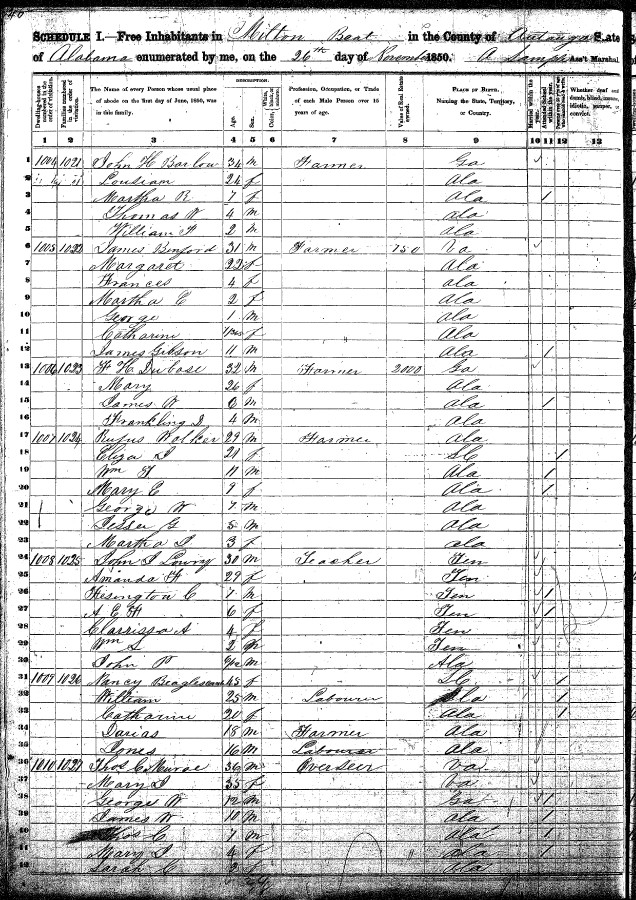 40
SCHEDULE I.—Free Inhabitants in Milton Beat in the County of Autauga State
of Alabama enumerated by me, on the 26th day of November 1850. Ass't Marshal
DESCRIPTION.
Dwelling-houses numbered in the order of visitation. Families numbered in the order of visitation. The Name of every Person whose usual place of abode on the first day of June, 1850, was in this family. Age. Sex. Color, White, black, or mulatto. Profession, Occupation, or Trade of each Male Person over 15 years of age. Value of Real Estate owned. PLACE OF BIRTH, Naming the State, Territory, or Country. Married within the year. Attended School within the year. Whether deaf and dumb, blind, insane, idiotic, pauper, or convict.
1 2 3 4 5 6 7 8 9 10 11 12 13
1 1004 1021 John H Barlow 34 m Farmer Ga
2 Lousiam 24 f Ala
3 Martha R 7 f Ala 1
4 Thomas W 4 m Ala
5 William 2 m Ala
6 1005 1022 James Benford 31 m Farmer 750 Va
7 Margaret 22 f Ala
8 Frances 4 f Ala
9 Martha E 2 f Ala
10 George 1 m Ala
11 Catharine f Ala
12 James Gibson 11 m Ala 1
13 1006 1023 W H Dubose 32 m Farmer 2000 Ga
14 Mary 26 f Ala
15 James W 6 m Ala 1
16 Frankling D 4 m Ala
17 1007 1024 Rufus Wolker 29 m Farmer Ala
18 Eliza 21 f SC 1
19 Wm 11 m Ala 1
20 Mary E 9 f Ala 1
21 George W 7 m Ala
22 Jesser G 5 m Ala
23 Martha 3 f Ala
24 1008 1025 John J Lowry 30 m Teacher Ten
25 Amanda 29 f Ten
26 Kesington C 7 m Ten 1
27 A E 6 f Ten 1
28 Clarrissa A 4 f Ten
29 Wm S 2 m Ten
30 John P m Ala
31 1009 1026 Nancy 45 f SC 1
32 William 25 m Labourer Ala 1
33 Catharine 20 f Ala 1
34 Darias 18 m Farmer Ala
35 Jones 16 m Labourer Ala
36 1010 1027 Thos C Munroe 36 m Overseer Va
37 Mary 35 f Va
38 George W 12 m Ga 1
39 James W 10 m Ala 1
40 Thos C 7 m Ala 1
41 Mary 4 f Ala 1
42 Sarah C 2 f Ala